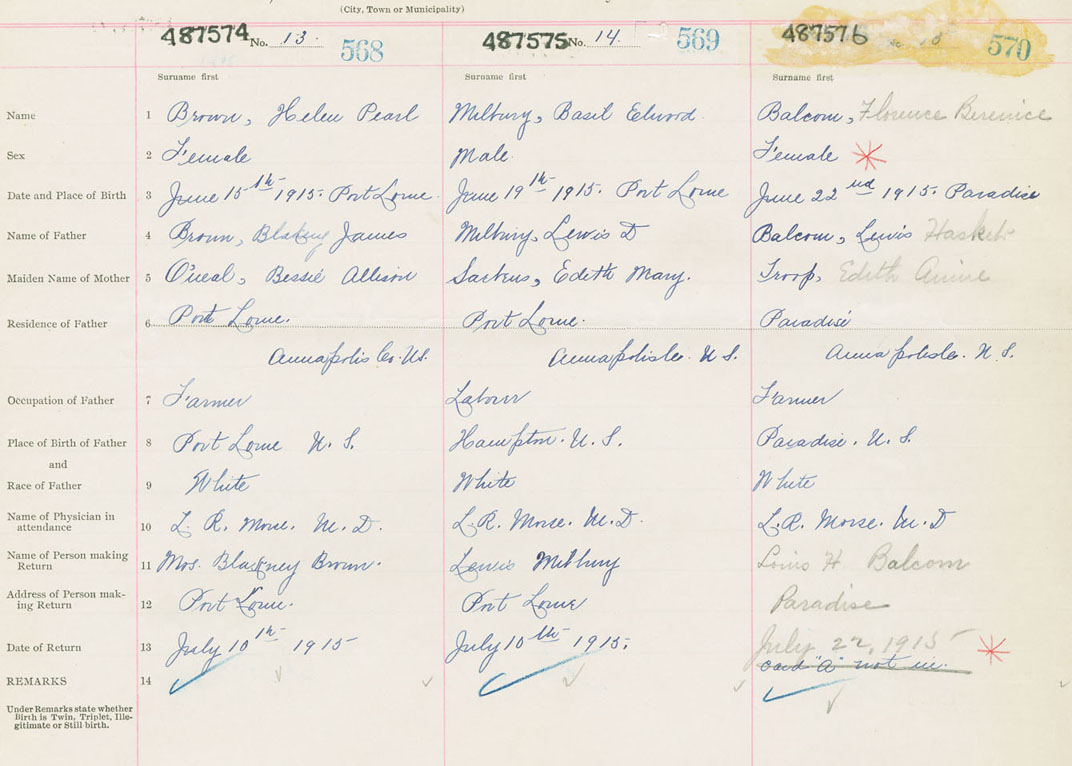 (City, Town or Municipality)
487574 No. 13. 568 487575 No. 14. 569 487576 No 570
Surname first Surname first Surname first
Name 1 Brown, Helen Pearl Milbury, Basil Elwood. Balcom, Florence Berenice
Sex 2 Female Male. Female
Date and Place of Birth 3 June 15th 1915. Port Lorne. June 19th 1915. Port Lorne June 22nd 1915. Paradise
Name of Father 4 Brown, Blakney James Milbury, Lewis D Balcom, Lewis
Maiden Name of Mother 5 O'neal, Bessie Allison Edith Mary. Troop, Edith Annie
Residence of Father 6 Port Lorne. Port Lorne. Paradise
Annapolis Co. N.S. Annapolis Co. N.S. Annapolis Co. N.S.
Occupation of Father 7 Farmer Labour Farmer
Place of Birth of Father 8 Port Lorne N.S. Hampton. N.S. Paradise. N.S.
and
Race of Father 9 White White White
Name of Physician in
attendance 10 L. R. Morse. M.D. L.R. Morse. M.D. L.R. Morse. M.D
Name of Person making
Return 11 Mrs. Blakney Brown. Lewis Milbury Louis H Balcom
Address of Person mak-
ing Return 12 Port Lorne. Port Lorne Paradise
Date of Return 13 July 10th 1915 July 10th 1915. July 22, 1915
card "A" not in.
REMARKS 14
Under Remarks state whether
Birth is Twin, Triplet, Ille-
gitimate or Still birth.